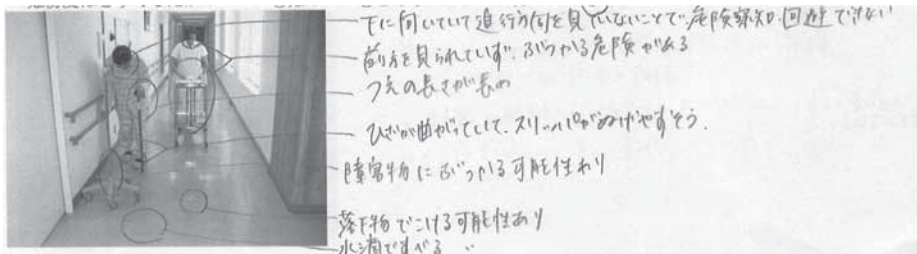 下に向いていて進行方向を見ていないことで、危険察知・回避できない
前方を見られていず、ぶつかる危険がある
つえの長さが長め
ひざが曲がっていて、スリッパがぬげやすそう.
障害物にぶつかる可能性あり
落下物でこける可能性あり
水滴ですべる 〃